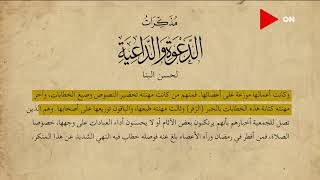 ON
مذكرات
الدعوة والداعية
لحسن البنا
وكانت أعمالها موزعة على أعضائها. فمنهم من كانت مهنته تحضير النصوص وصيغ الخطابات، وآخر
مهنته كتابة هذه الخطابات بالحبر (الزفر) وثالث مهنته طبعها، والباقون توزيعها على أصحابها. وهم الذين
تصل للجمعية أخبارهم بأنهم يرتكبون بعض الآثام أو لا يحسنون أداء العبادات على وجهها، خصوصا
الصلاة، فمن أفطر في رمضان ورآه الأعضاء بلغ عنه فوصله خطاب فيه النهي الشديد عن هذا المنكر.